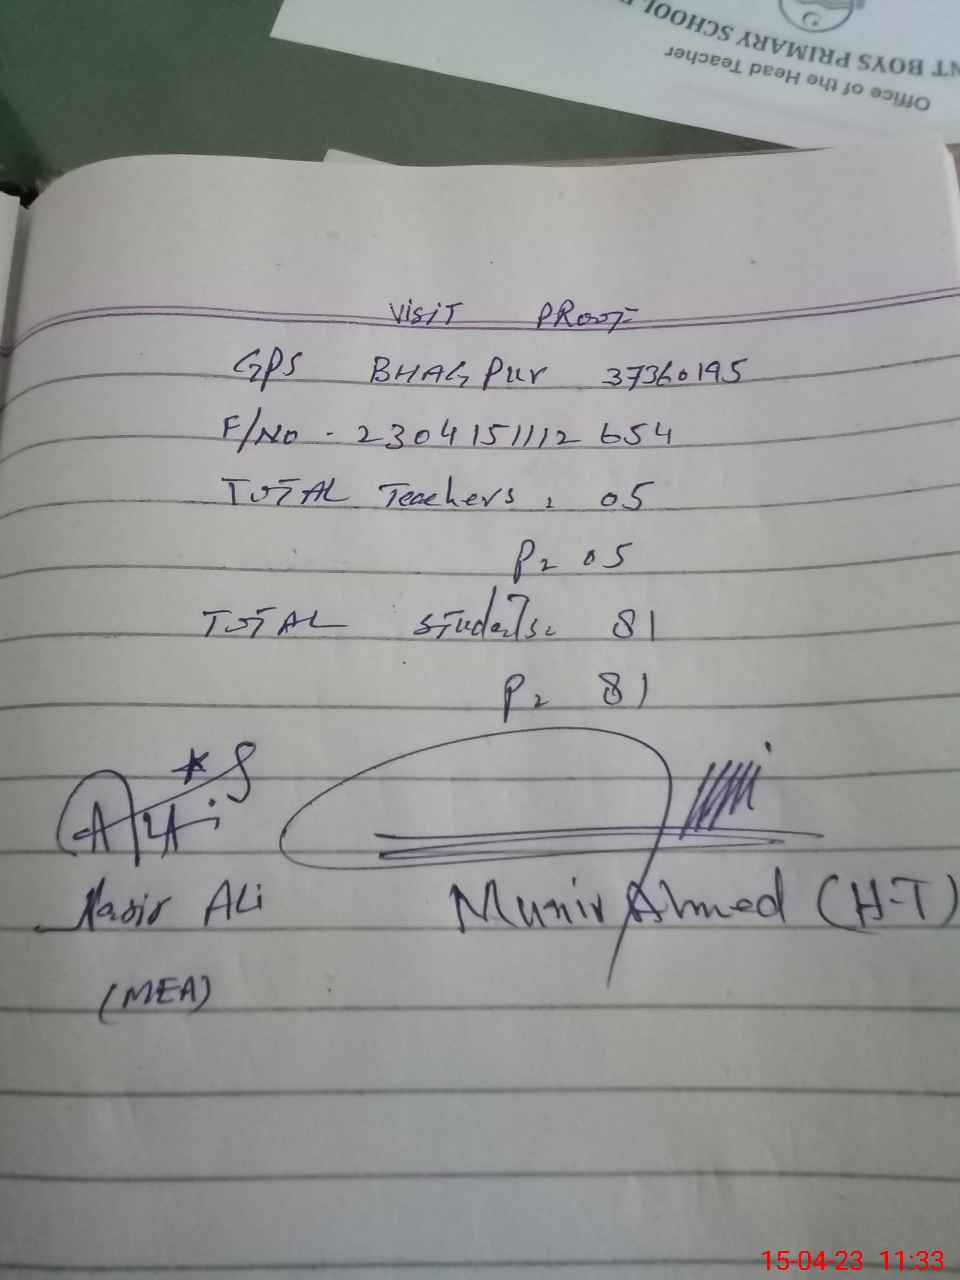 Office of the Head Teacher
NT BOYS PRIMARY SCHOOL
VISIT PROOF
GPS BHAG PUR 37360195
F/No - 2304151112654
TOTAL Teachers : 05
P = 05
TOTAL students : 81
P = 81
Nasir Ali
Munir Ahmed (H-T)
(MEA)
15-04-23 11:33